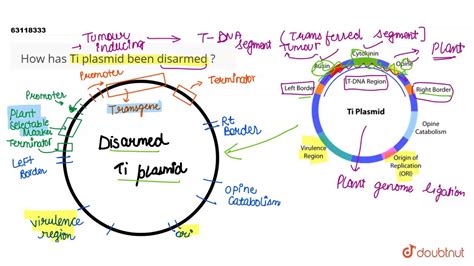 63118333
Tumour inducing → T-DNA segment (Transferred segment)
Tumour
Plant
How has Ti plasmid been disarmed ?
Promoter
Terminator
Promoter
Transgene
Plant
Selectable
Marker
Terminator
Left
Border
Rt
Border
Disarmed
Ti plasmid
Opine
Catabolism
virulence
region
ori
Cytokinin
Auxin
Opine
Left Border
T-DNA Region
Right Border
Ti Plasmid
Opine
Catabolism
Virulence
Region
Origin of
Replication
(ORI)
Plant genome ligation
doubtnut